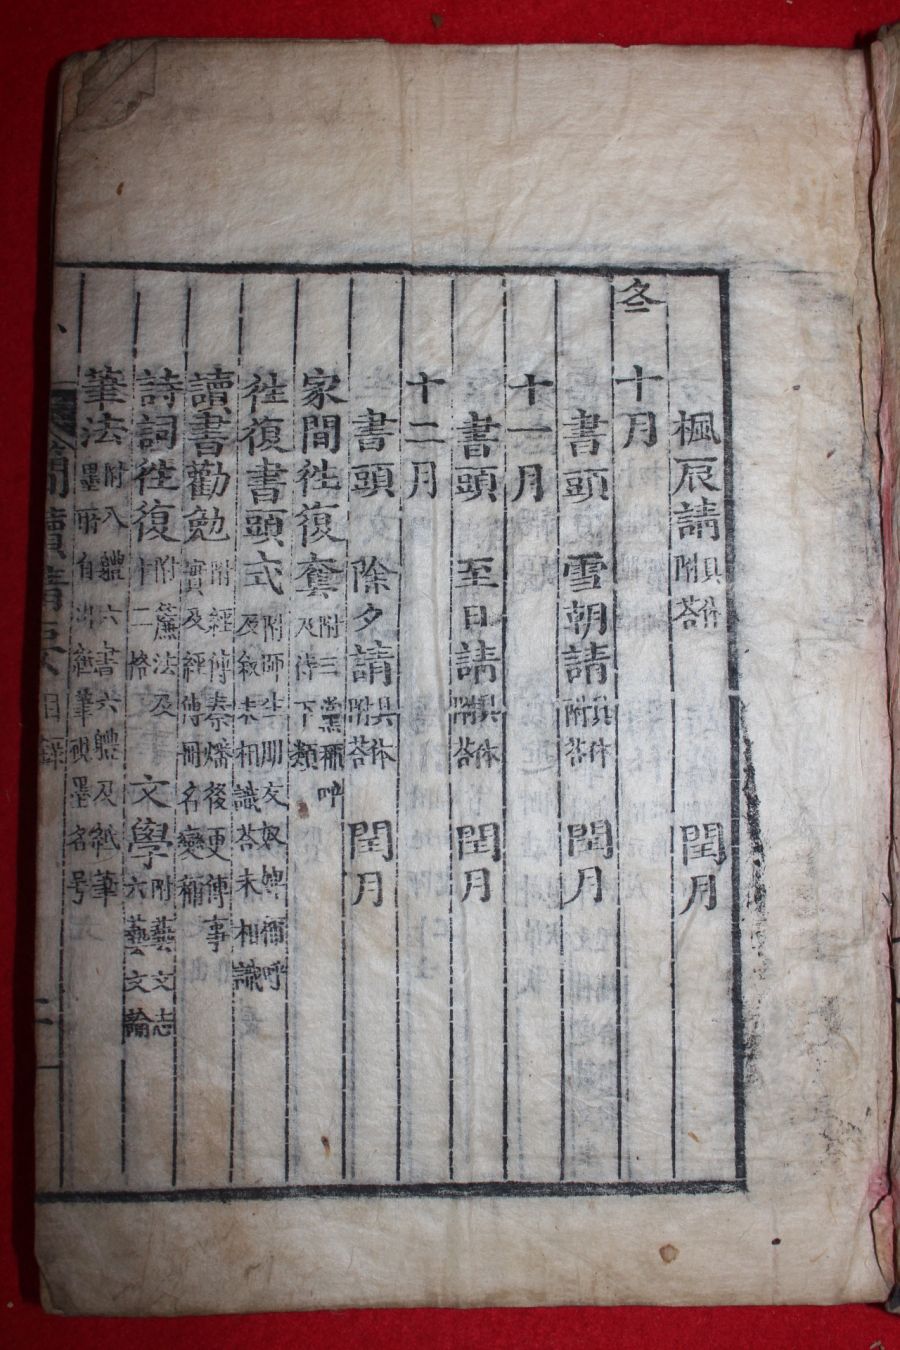 楓辰請附答具体 閏月
冬 十月
書頭 雪朝請附答具体 閏月
十一月
書頭 至日請附答具体 閏月
十二月
書頭 除夕請附答具体 閏月
家間徃復套附三黨稱呼及侍下類
徃復書頭式附師生朋友奴婢稱呼及叙未相識答未相識
讀書勸勉附經傳秦燔後更傳事實及經傳冊名變稱
詩詞徃復附簾法及十二格 文學附藝文志六藝文論
筆法附入軆六書六軆及紙筆墨所自出齊筆硯墨名号
簡牘精要 目錄 二